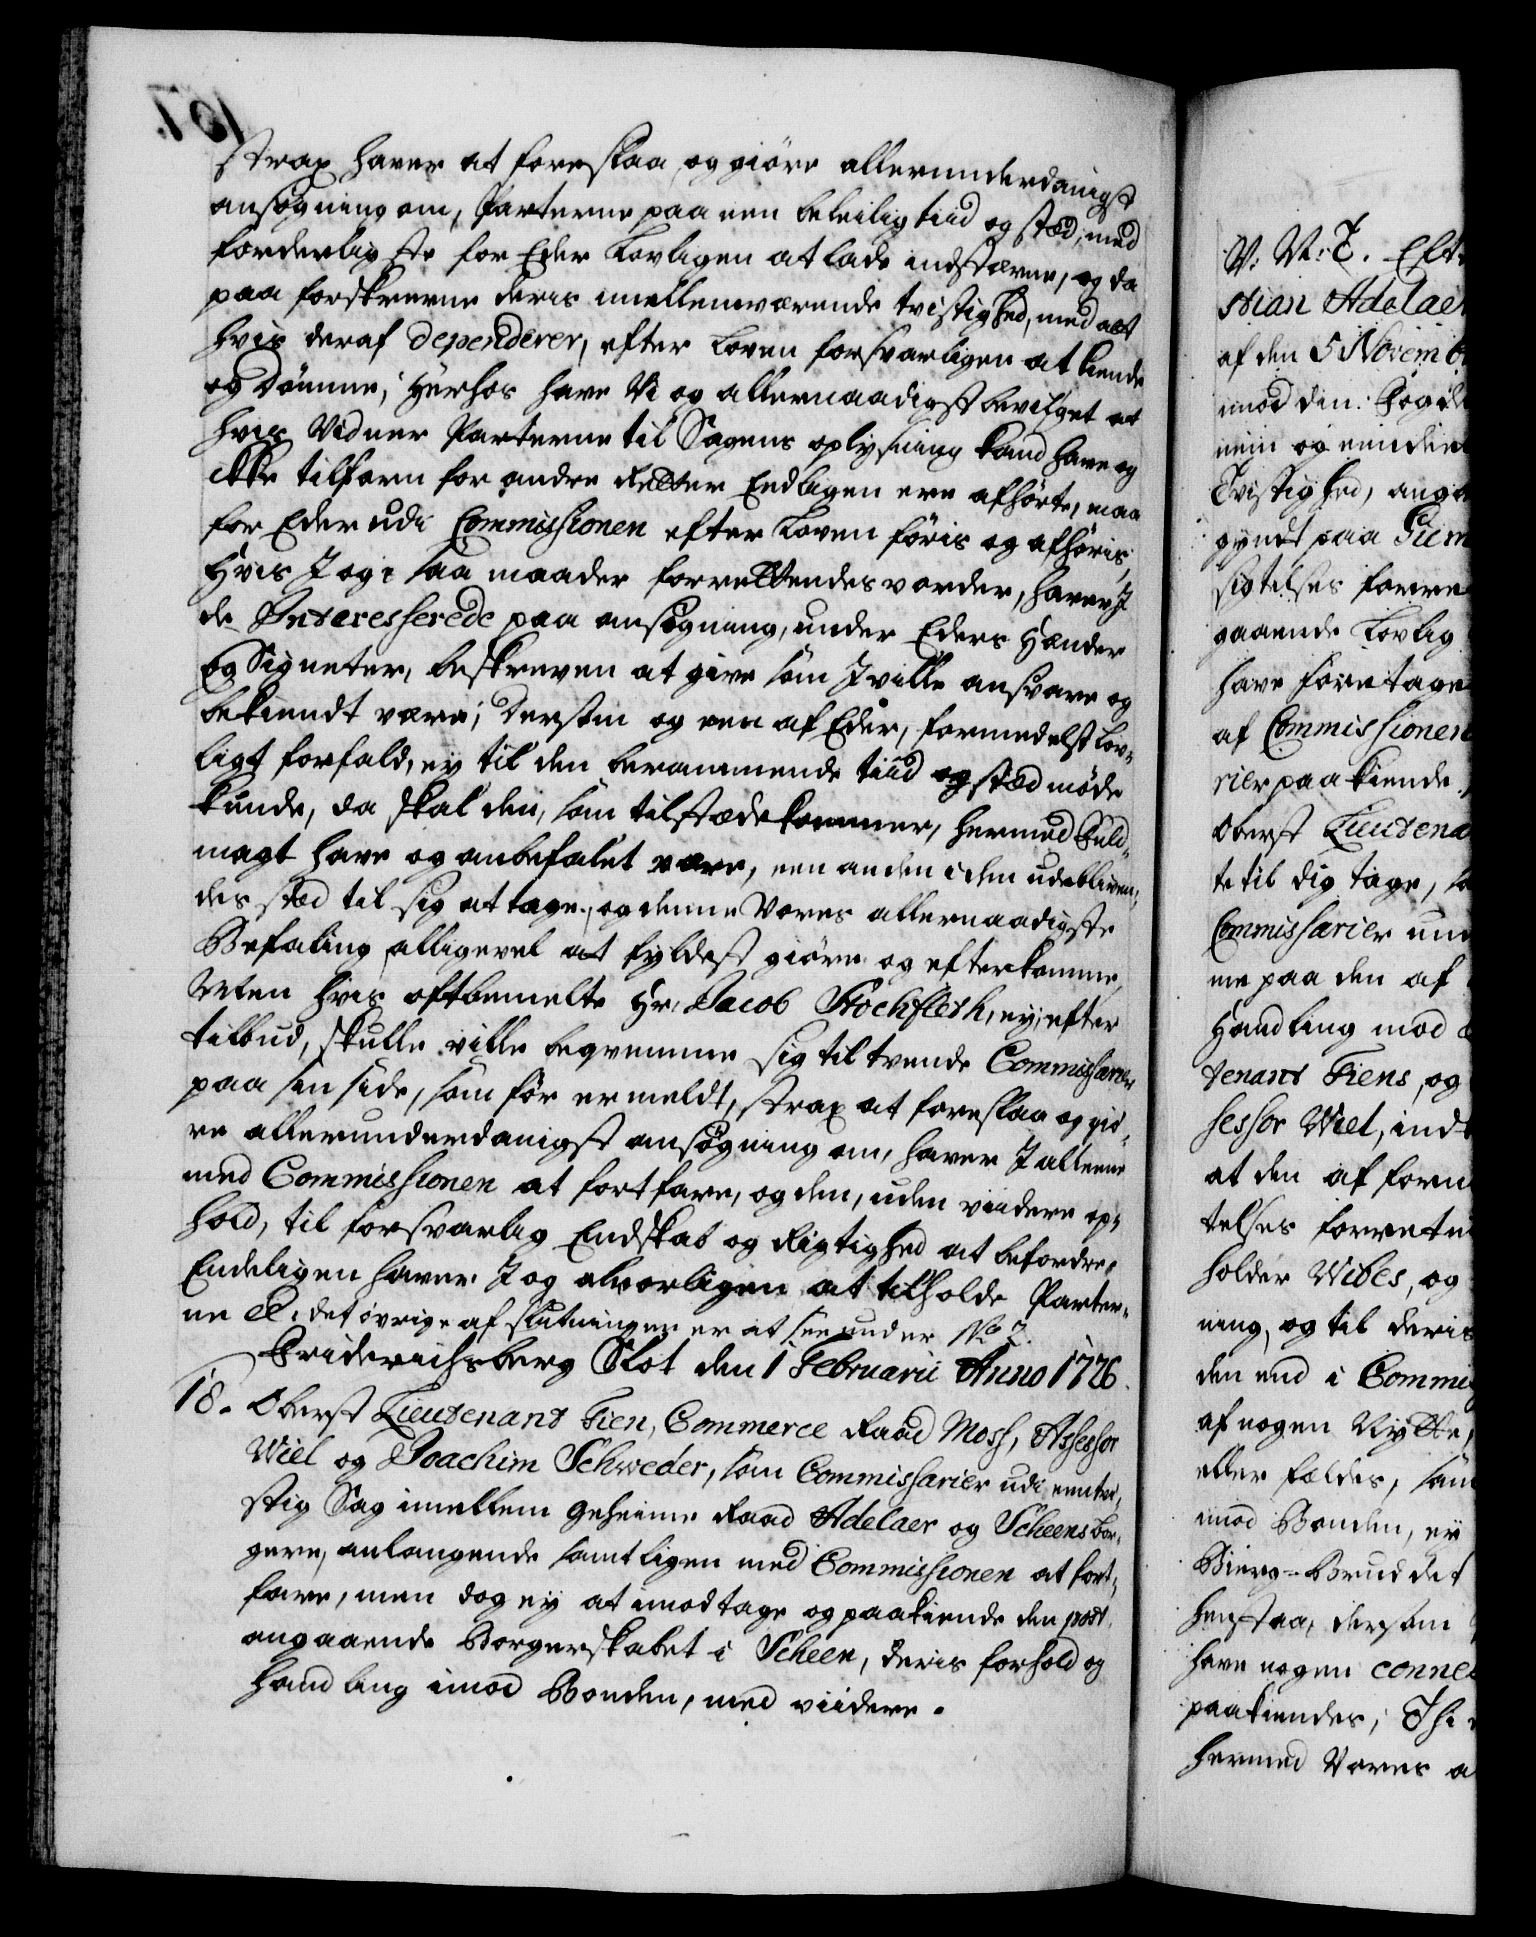 strax haver at foreslaa, og giöre allerunderdanigst
ansögning om, Parterne paa een beleilig tiid og stæd, med
forderligste for Eder Lovligen at lade indstævne, og da
paa forskrevne deris imellemværende tvistighed, med alt
hvis deraf dependerer, efter Loven forsvarligen at kiende
og dömme; Herhos have Vi og allernaadigst bevilget at
hvis Vidner Parterne til Sagens oplysning kand have og
ikke tilforn for andre Retter Eedligen ere afhörte, maa
for Eder udi Commissionen efter Loven föris og afhöris,
Hvis I og i saa maader forrettendes vorder, haver I
de Interesserede paa ansögning, under Eders Hænder
og Signeter, beskreven at give som I ville ansvare og
bekiendt være; Dersom og een af Eder, formedelst Lov-
ligt forfald, ey til den berammende tiid og stæd möde
kunde, da skal den, som tilstæde kommer, hermed Fuld-
magt have og anbefalet være, een anden i den udeblivens-
des stæd til sig at tage, og denne Vores allernaadigste
Befaling alligevel at fyldest giöre og efterkomme,
Men hvis oftbemelte Hr. Jacob Stochfleth, ey, efter
tilbud, skulle ville beqvemme sig til tvende Commissarier
paa sin side, som för er meldt, strax at foreslaa og giö-
re allerunderdanigst ansögning om, haver I alleene
med Commissionen at fortfare, og den, uden viidere op-
hold, til forsvarlig Endskab og Rigtighed at befordre,
Endeligen haver I og alvorligen at tilholde Parter-
ne &c. det övrige af slutningen er at see under No 7.
Friderichsberg Slot den 1 Februarii Anno 1726.
18. Oberst Lieutenant Fien, Commerce Raad Moss, Assessor
Wiel og Joachim Schweder, som Commissarier udi een tvi-
stig Sag imellem Geheime Raad Adelaer og Scheens bor-
gere, anlangende samtligen med Commissionen at fort-
fare, men dog ey at imodtage og paakiende den post
angaaende Borgerskabet i Scheen, deris forhold og
handling imod Bonden, med viidere.
V. M: T. Eft
stian Adelaer
af den 5 Novemb
imod din
nem og
Tvistighed, ang
gyndt paa Giem
sigtelses forre
gaaende Lovlig
have foretage
af Commissionen
rier paakiende
Oberst Lieutena
te til dig tage, so
Commissarier un
me paa den af
Handling mod
tenant Fiens, og
sessor Wiel, ind
at den af forn
telses forretn
holder Wibes, og
ning, og til deris
den end i Commis
af nogen Nytte,
eller fældes, som
imod Bonden, ey
Bierg-Brud det
henstaa, dersom
have nogen conne
paakiendes; Thi
hermed Vores a